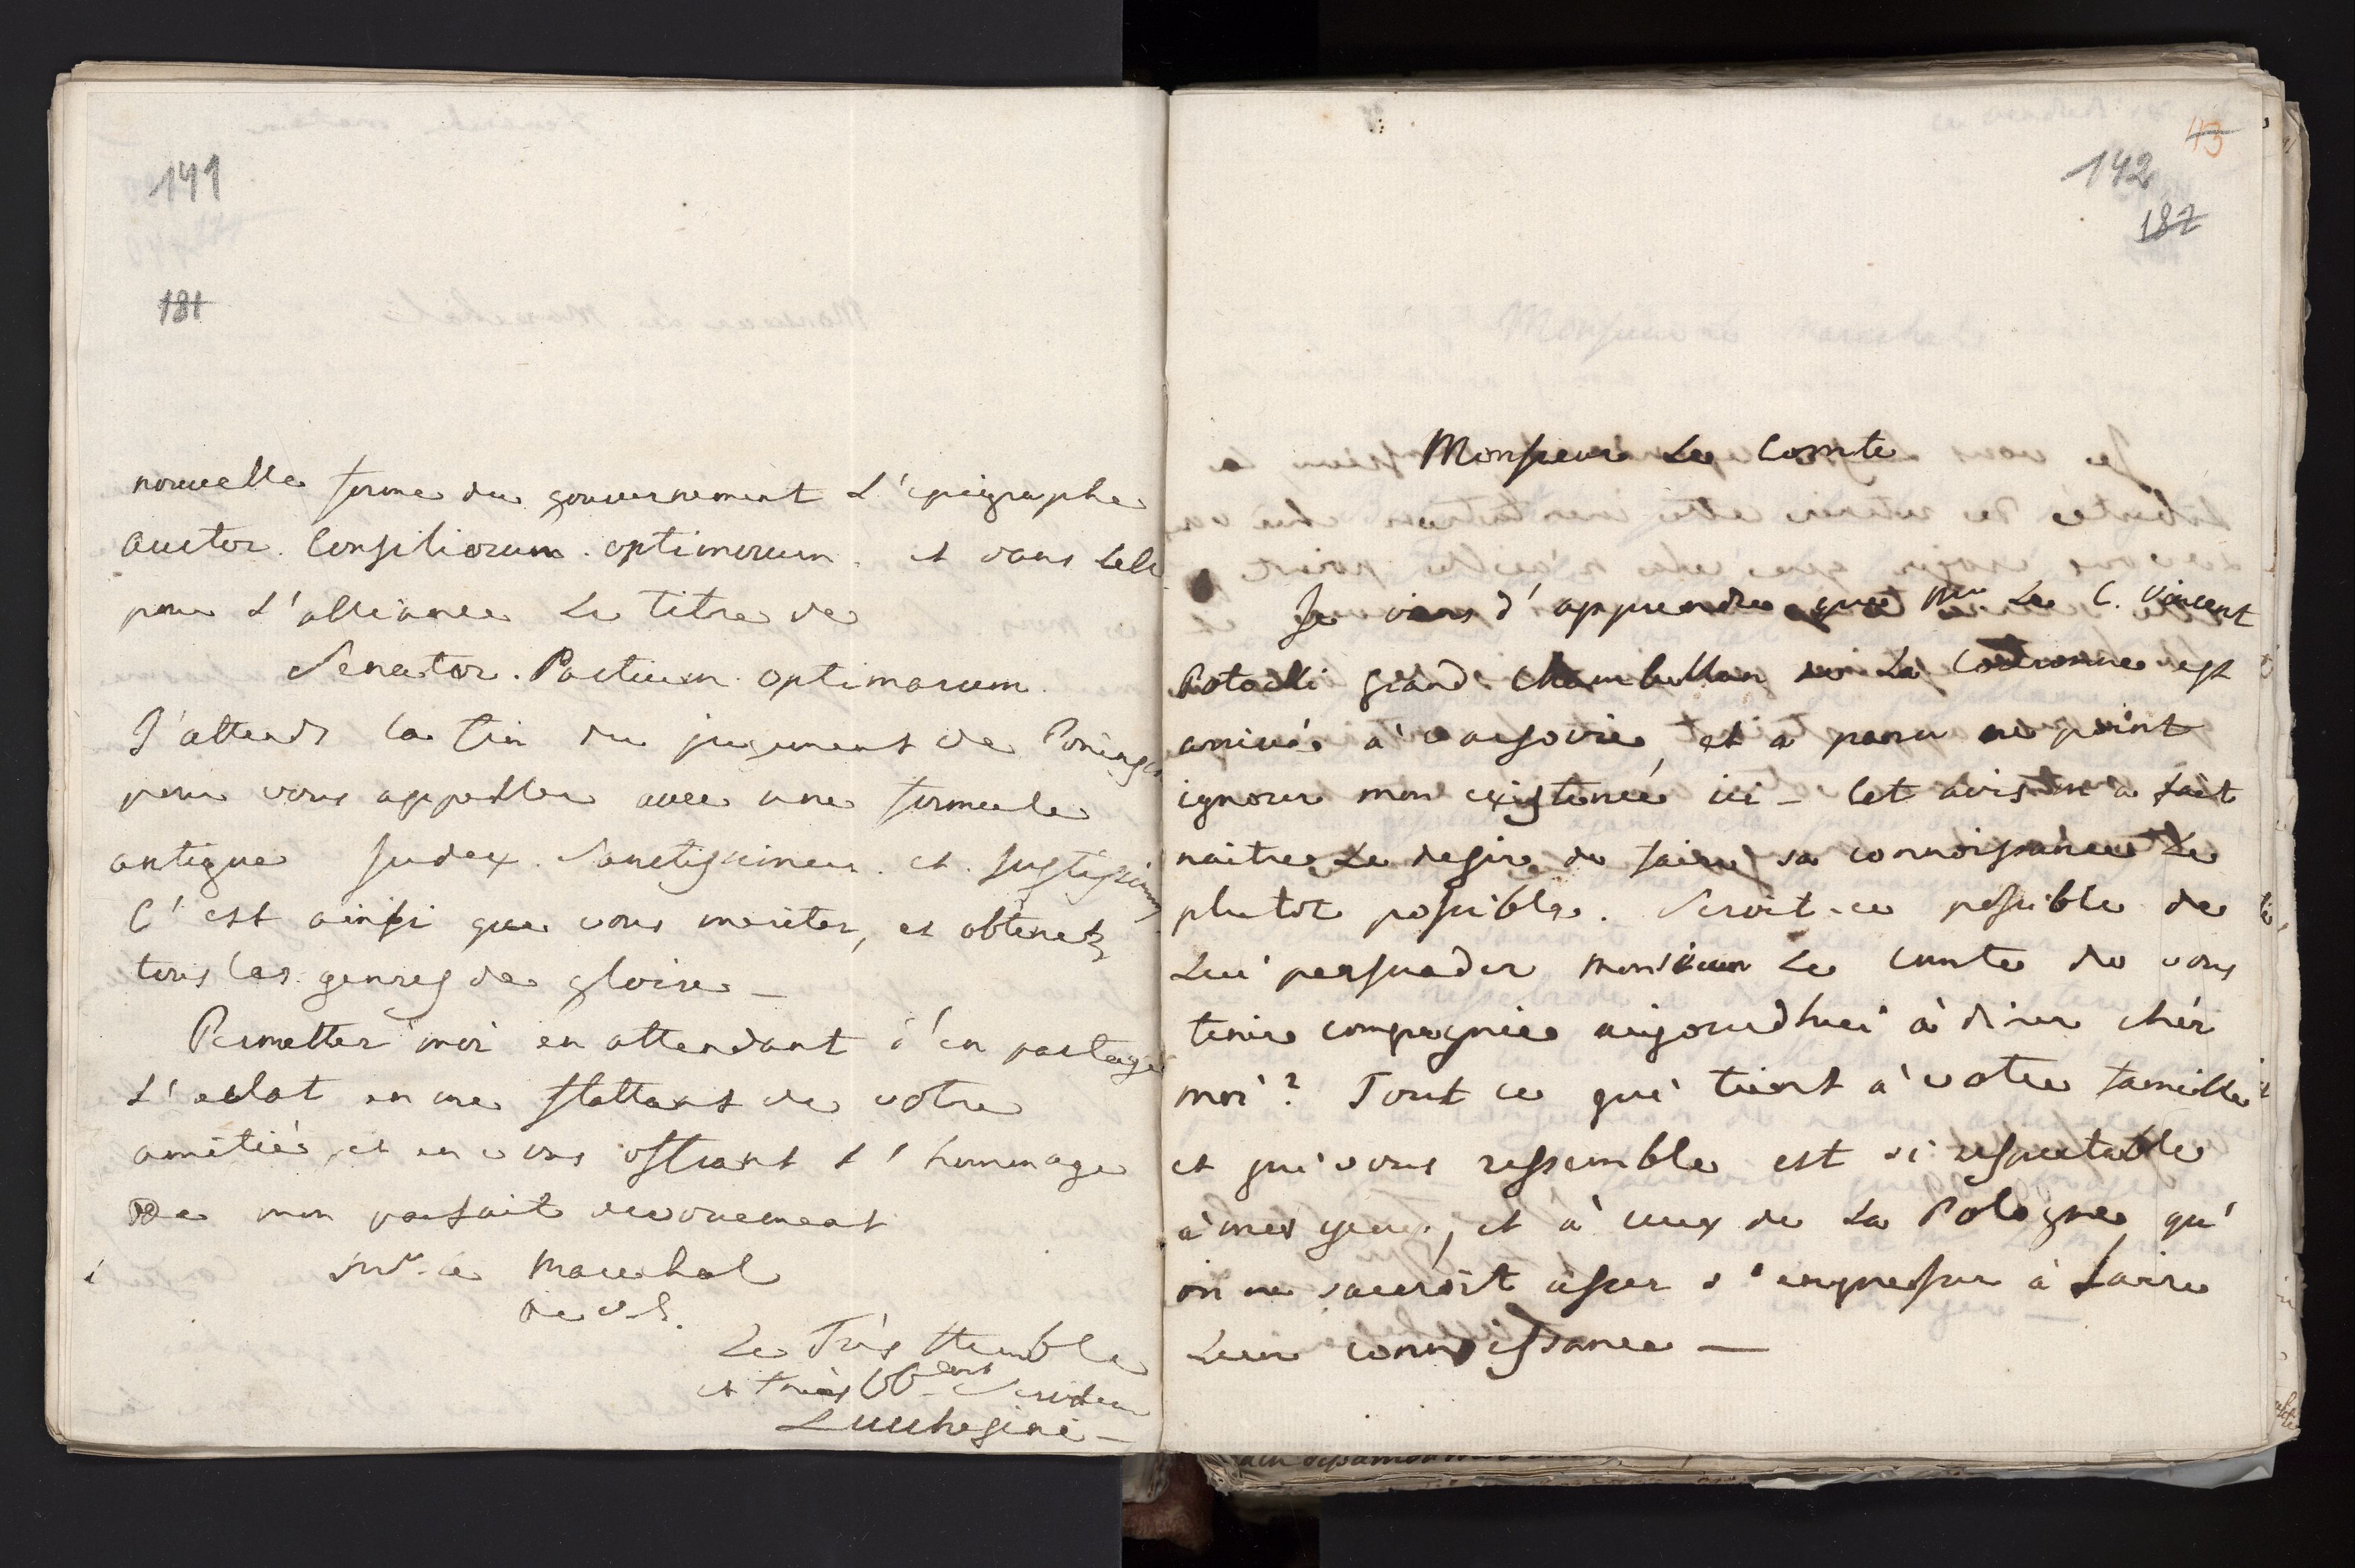 141
181
nouvelle forme du gouvernement L'epigraphe
Auctor. Consiliorum. optimorum. et vous
pour L'alliance Le titre de
Senator. Pactium. optimarum.
J'attends la fin du jugement de
pour vous appeller avec une formule
antique Judex. Sanctissimus. et. Justissimus
C'est ainsi que vous meritez, et obtenez
tous les genres de gloire _
Permetter moi en attendant d'en partager
L'eclat en me flattant de votre
amitié, et en vous offrant L'hommage
De mon parfait devouement
Mr. Le Marechal
de V. E.
Le Très Humble
et très Ob-ent Serviteur
Lucchesini _
43
142
187
Monsieur Le Comte
Je viens d'apprendre que Mr Le C. Vincent
Potocki grand Chambellan de La Couronne est
arrivé à varsovie, et a paru ne point
ignorer mon existence ici _ Cet avis m'a fait
naitre Le desire de faire sa connoissance Le
plutot possible. Seroit-ce possible de
Lui persuader monsieur Le comte de vous
tenir compagnie aujourdhui à diner chér
moi? Tout ce qui tient à votre famille
et qui vous ressemble est si respectable
à mes yeux, et à ceux de La Pologne, qu'
on ne sauroit asser s'empresser à faire
Leur connoissance _